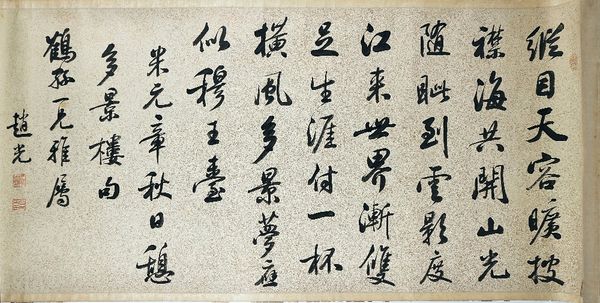 縱目天容曠披
襟海共開山光
隨眦到雲影度
江来世界漸雙
足生涯付一杯
橫風多景夢應
似穆王臺
米元章秋日憩
多景樓句
鶴孫一兄雅屬
趙光